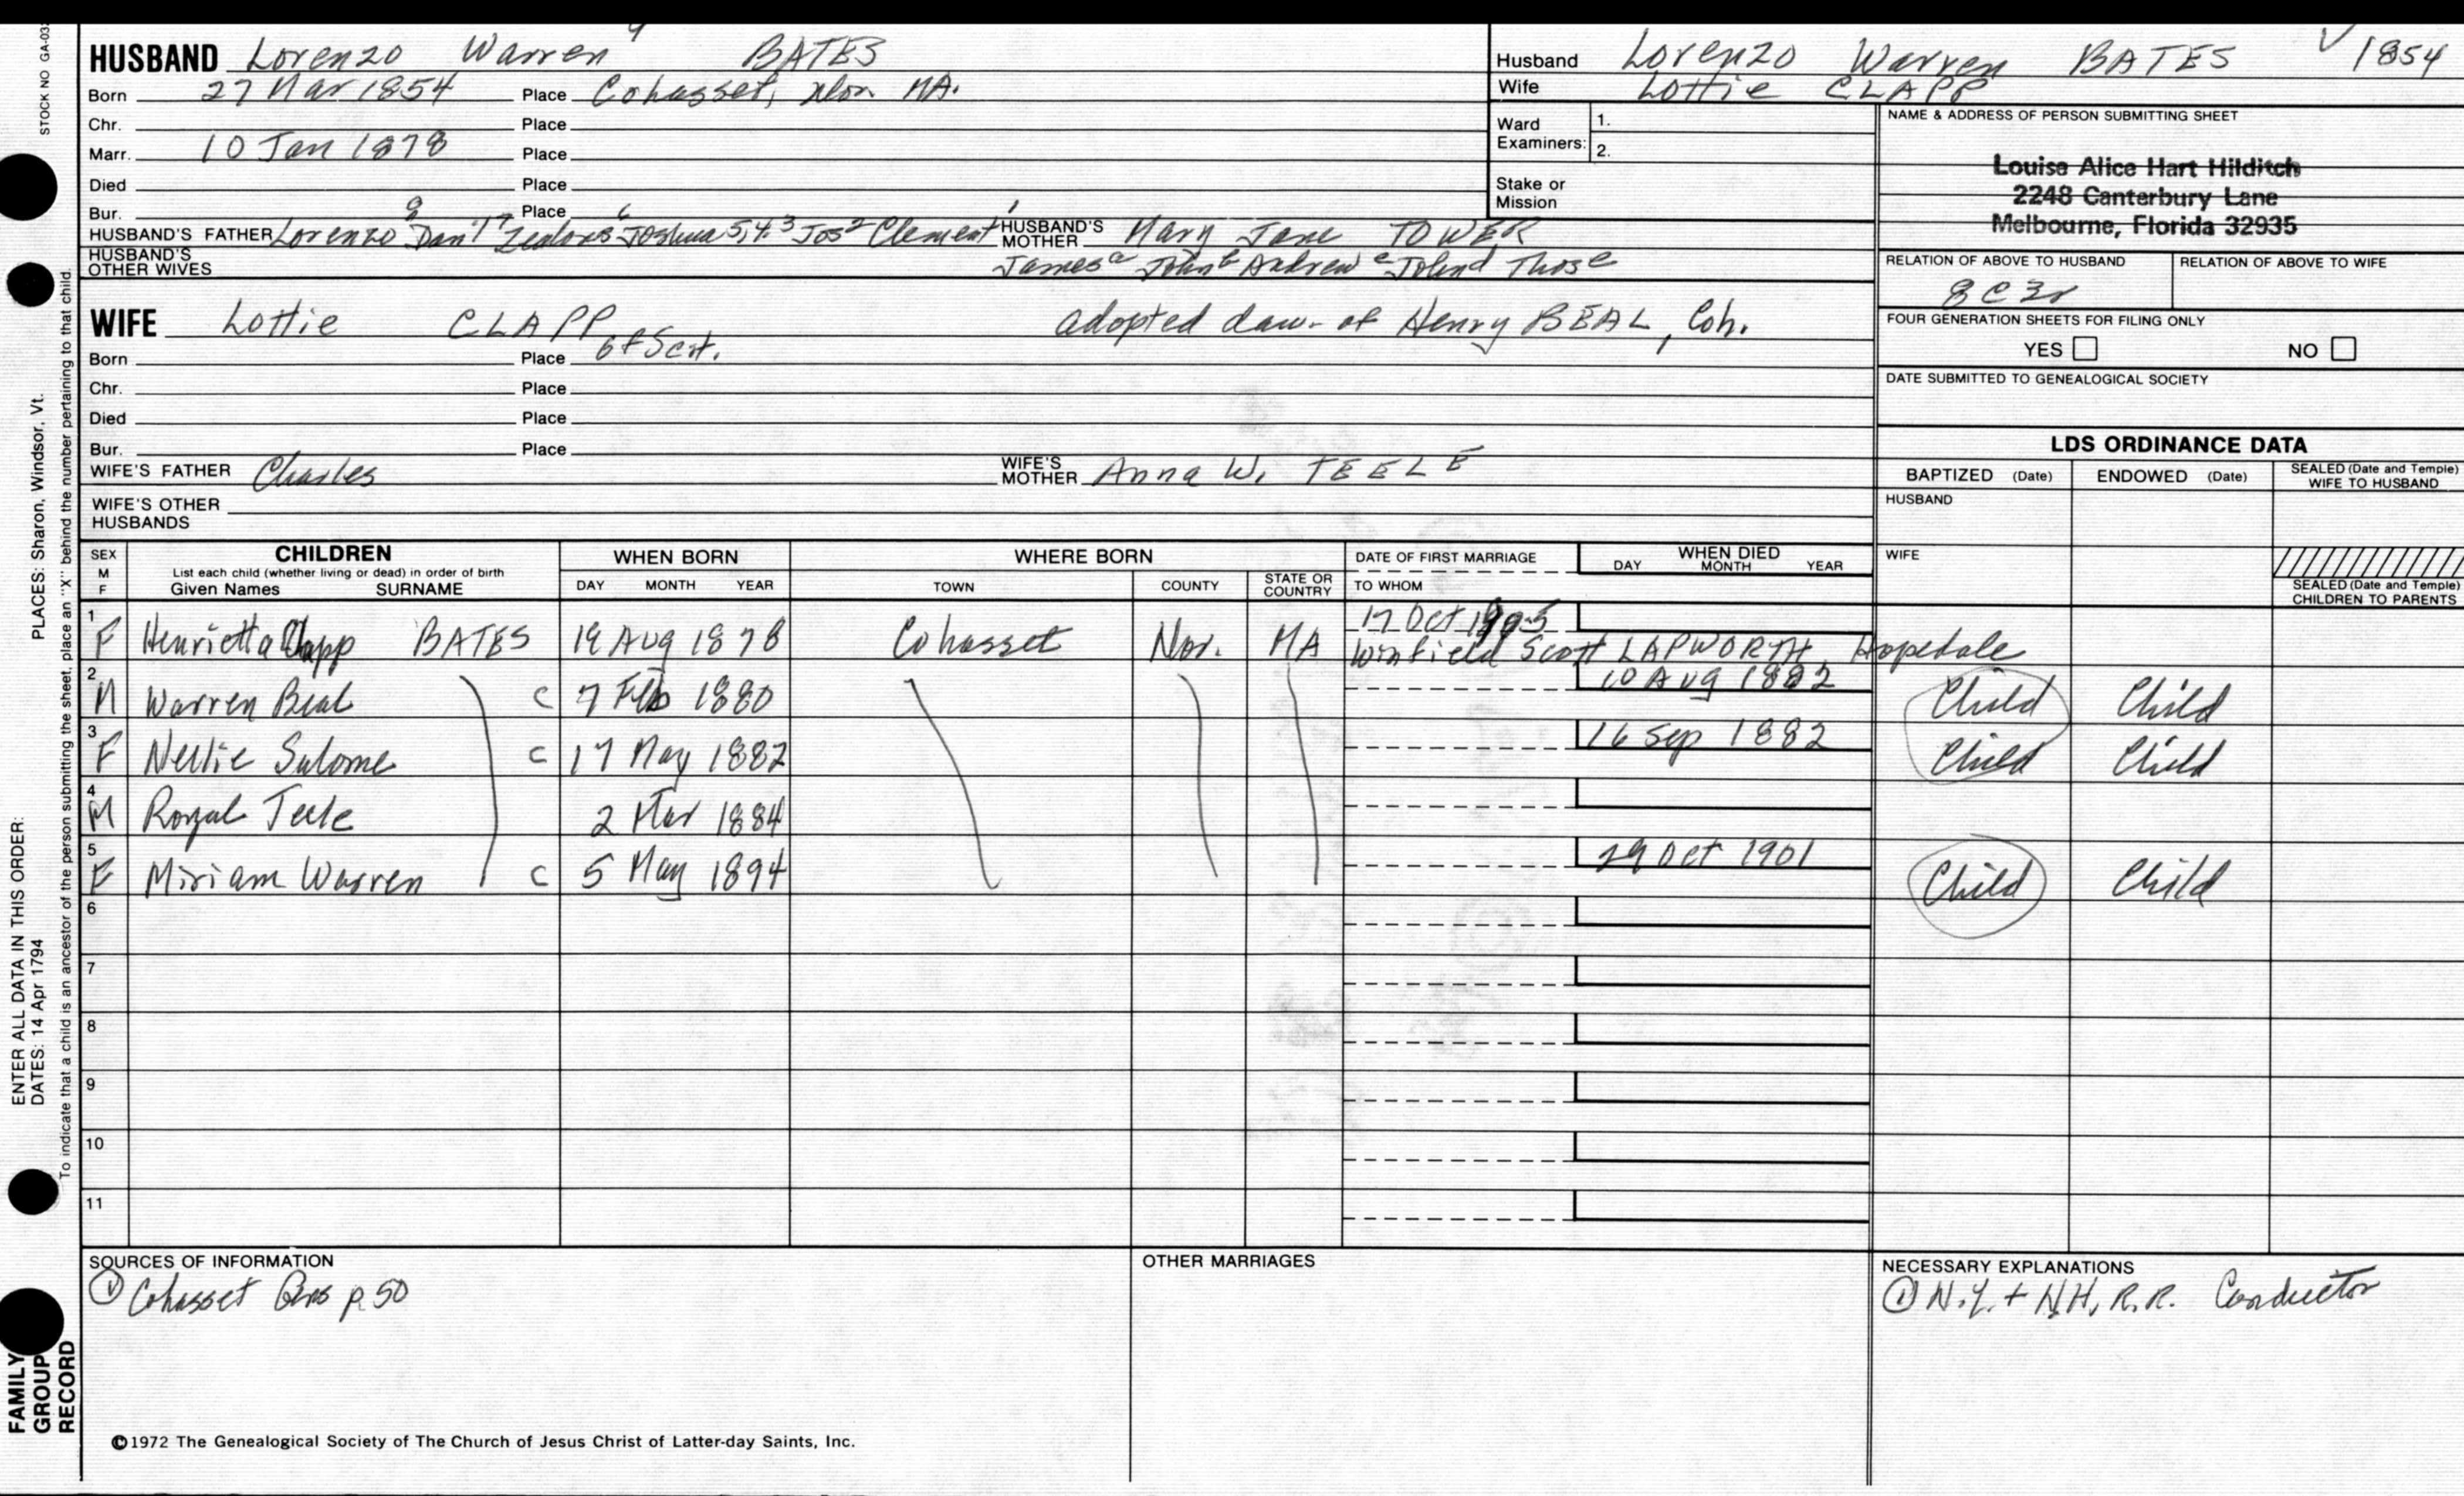 STOCK NO GA-03
HUSBAND Lorenzo Warren 9 BATES
Born 27 Mar 1854 Place Cohasset, Nor. MA.
Chr. Place
Marr. 10 Jan 1878 Place
Died Place
Bur. Place
HUSBAND'S FATHER Lorenzo 8 Dan'l 7 Zealous 6 Joshua 5,4,3 Jos 2 Clement 1 HUSBAND'S MOTHER Mary Jane TOWER
HUSBAND'S OTHER WIVES James a John b Andrew c John d Thos e
WIFE Lottie CLAPP adopted daw. of Henry BEAL, Coh.
Born Place of Scit.
Chr. Place
Died Place
Bur. Place
WIFE'S FATHER Charles WIFE'S MOTHER Anna W. TEELE
WIFE'S OTHER HUSBANDS
Husband Lorenzo Warren BATES V 1854
Wife Lottie CLAPP
Ward Examiners: 1.
2.
Stake or Mission
NAME & ADDRESS OF PERSON SUBMITTING SHEET
Louise Alice Hart Hilditch
2248 Canterbury Lane
Melbourne, Florida 32935
RELATION OF ABOVE TO HUSBAND RELATION OF ABOVE TO WIFE
8C3r
FOUR GENERATION SHEETS FOR FILING ONLY
YES NO
DATE SUBMITTED TO GENEALOGICAL SOCIETY
LDS ORDINANCE DATA
BAPTIZED (Date) ENDOWED (Date) SEALED (Date and Temple) WIFE TO HUSBAND
HUSBAND
WIFE
SEALED (Date and Temple) CHILDREN TO PARENTS
SEX M F CHILDREN WHEN BORN WHERE BORN DATE OF FIRST MARRIAGE WHEN DIED
List each child (whether living or dead) in order of birth
Given Names SURNAME DAY MONTH YEAR TOWN COUNTY STATE OR COUNTRY TO WHOM DAY MONTH YEAR
17 Oct 1905
1 F Henrietta Clapp BATES 19 Aug 1878 Cohasset Nor. MA Winfield Scott LAPWORTH, Hopedale
2 M Warren Beal C 7 Feb 1880 10 Aug 1882 Child Child
3 F Nellie Salome C 17 May 1882 16 Sep 1882 Child Child
4 M Royal Teele 2 Mar 1884
5 F Miriam Warren C 5 May 1894 29 Oct 1901 Child Child
6
7
8
9
10
11
SOURCES OF INFORMATION
① Cohasset Gens p. 50
OTHER MARRIAGES
NECESSARY EXPLANATIONS
① N.Y. + N.H. R.R. Conductor
©1972 The Genealogical Society of The Church of Jesus Christ of Latter-day Saints, Inc.
FAMILY GROUP RECORD
ENTER ALL DATA IN THIS ORDER:
DATES: 14 Apr 1794 PLACES: Sharon, Windsor, Vt.
To indicate that a child is an ancestor of the person submitting the sheet, place an "X" behind the number pertaining to that child.